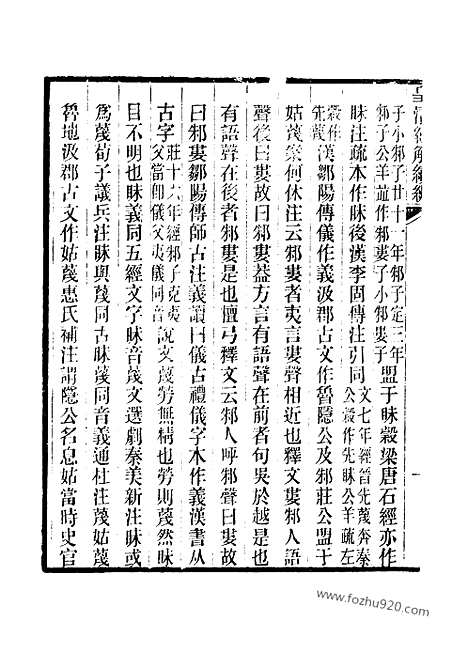 皇清經解續編
子小邾子廿十一年邾子定三年
邾子公羊疏作邾婁子小邾婁子
盟于眛穀梁唐石經亦作
眛注疏本作昧後漢李固傳注引同
文七年經晉先蔑奔秦
公穀作先眛公羊疏左
穀作
先蔑
漢鄒陽傳儀作義汲郡古文作魯隱公及邾莊公盟于
姑蔑案何休注云邾婁者夷言婁聲相近也釋文婁邾人語
聲後曰婁故曰邾婁葢方言有語聲在前者句吳於越是也
有語聲在後者邾婁是也檀弓釋文云邾人呼邾聲曰婁故
曰邾婁鄒陽傳師古注義讀曰儀古禮儀字本作義漢書从
古字
莊十六年經邾子克夷
父當卽儀父夷儀同音
說文蔑勞無精也勞則蔑然眛
目不明也眛義同五經文字眛音蔑文選劇秦美新注眛或
爲蔑荀子議兵注眛與蔑同古眛蔑同音義通杜注蔑姑蔑
魯地汲郡古文作姑蔑惠氏補注謂隱公名息姑當時史官
一
www.fozhu920.com